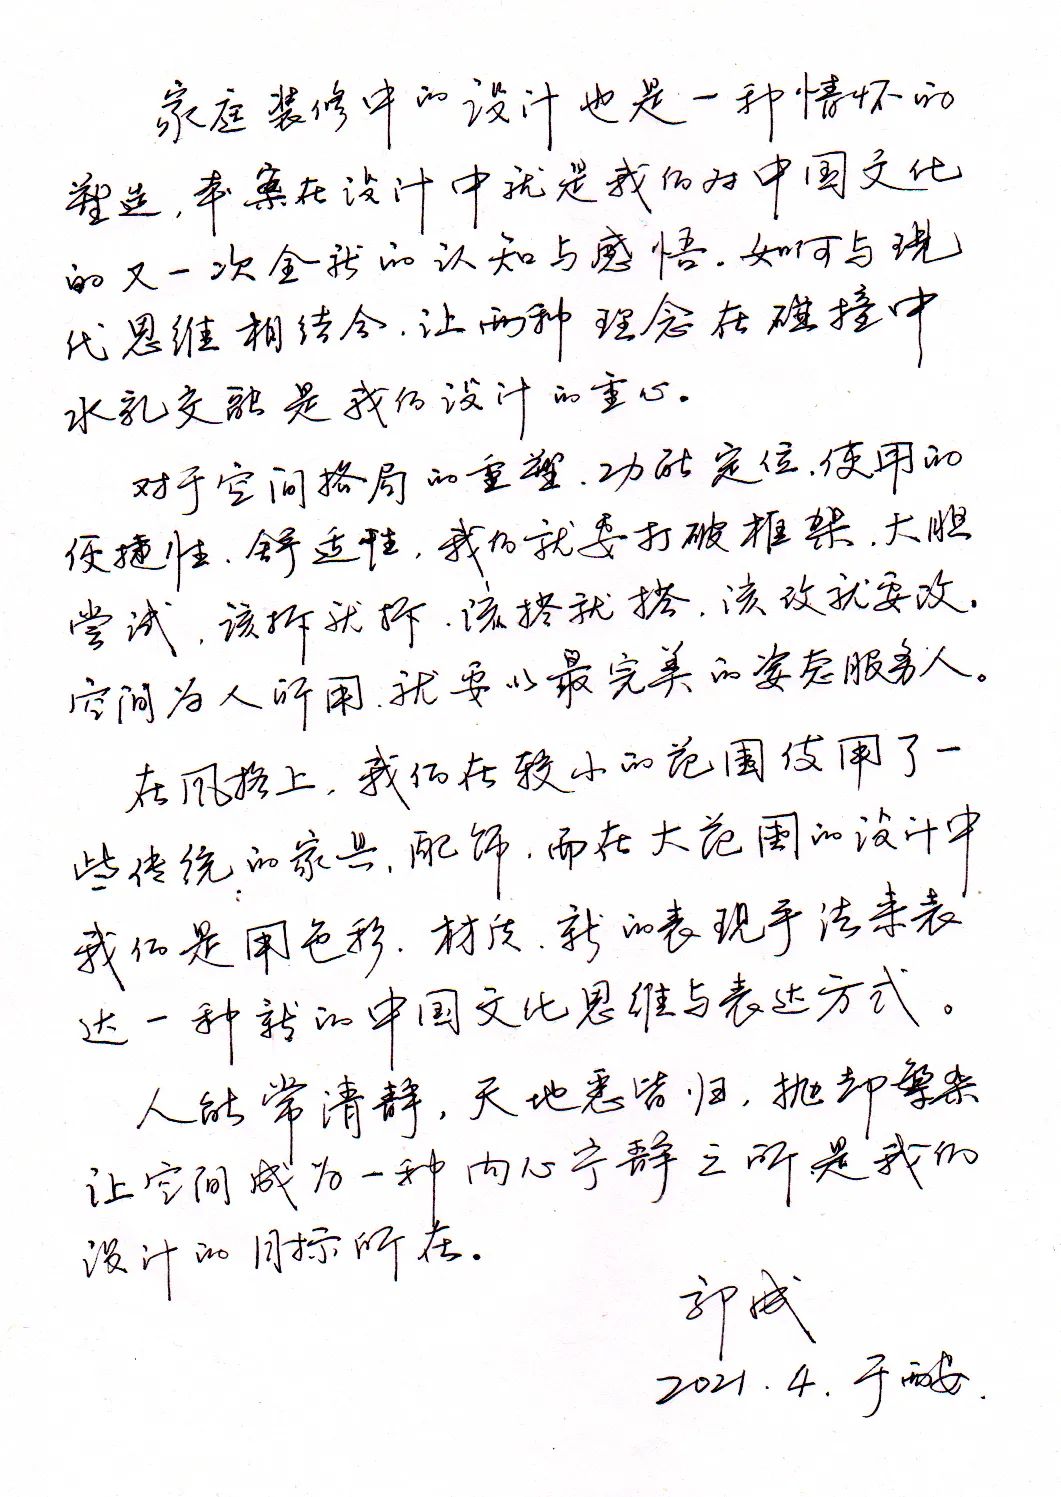 家庭装修中的设计也是一种情怀的
塑造,本案在设计中就是我们对中国文化
的又一次全新的认知与感悟.如何与现
代思维相结合.让两种理念在碰撞中
水乳交融是我们设计的重心。
对于空间格局的重塑.功能定位.使用的
便捷性.舒适性,我们就要打破框架.大胆
尝试,该拆就拆.该搭就搭,该改就要改.
空间为人所用.就要以最完美的姿态服务人。
在风格上,我们在较小的范围使用了一
些传统的家具,配饰.而在大范围的设计中
我们是用色彩.材质.新的表现手法来表
达一种新的中国文化思维与表达方式。
人能常清静,天地悉皆归,抛却繁杂
让空间成为一种内心宁静之所是我们
设计的目标所在。
郭成
2021.4.于西安.